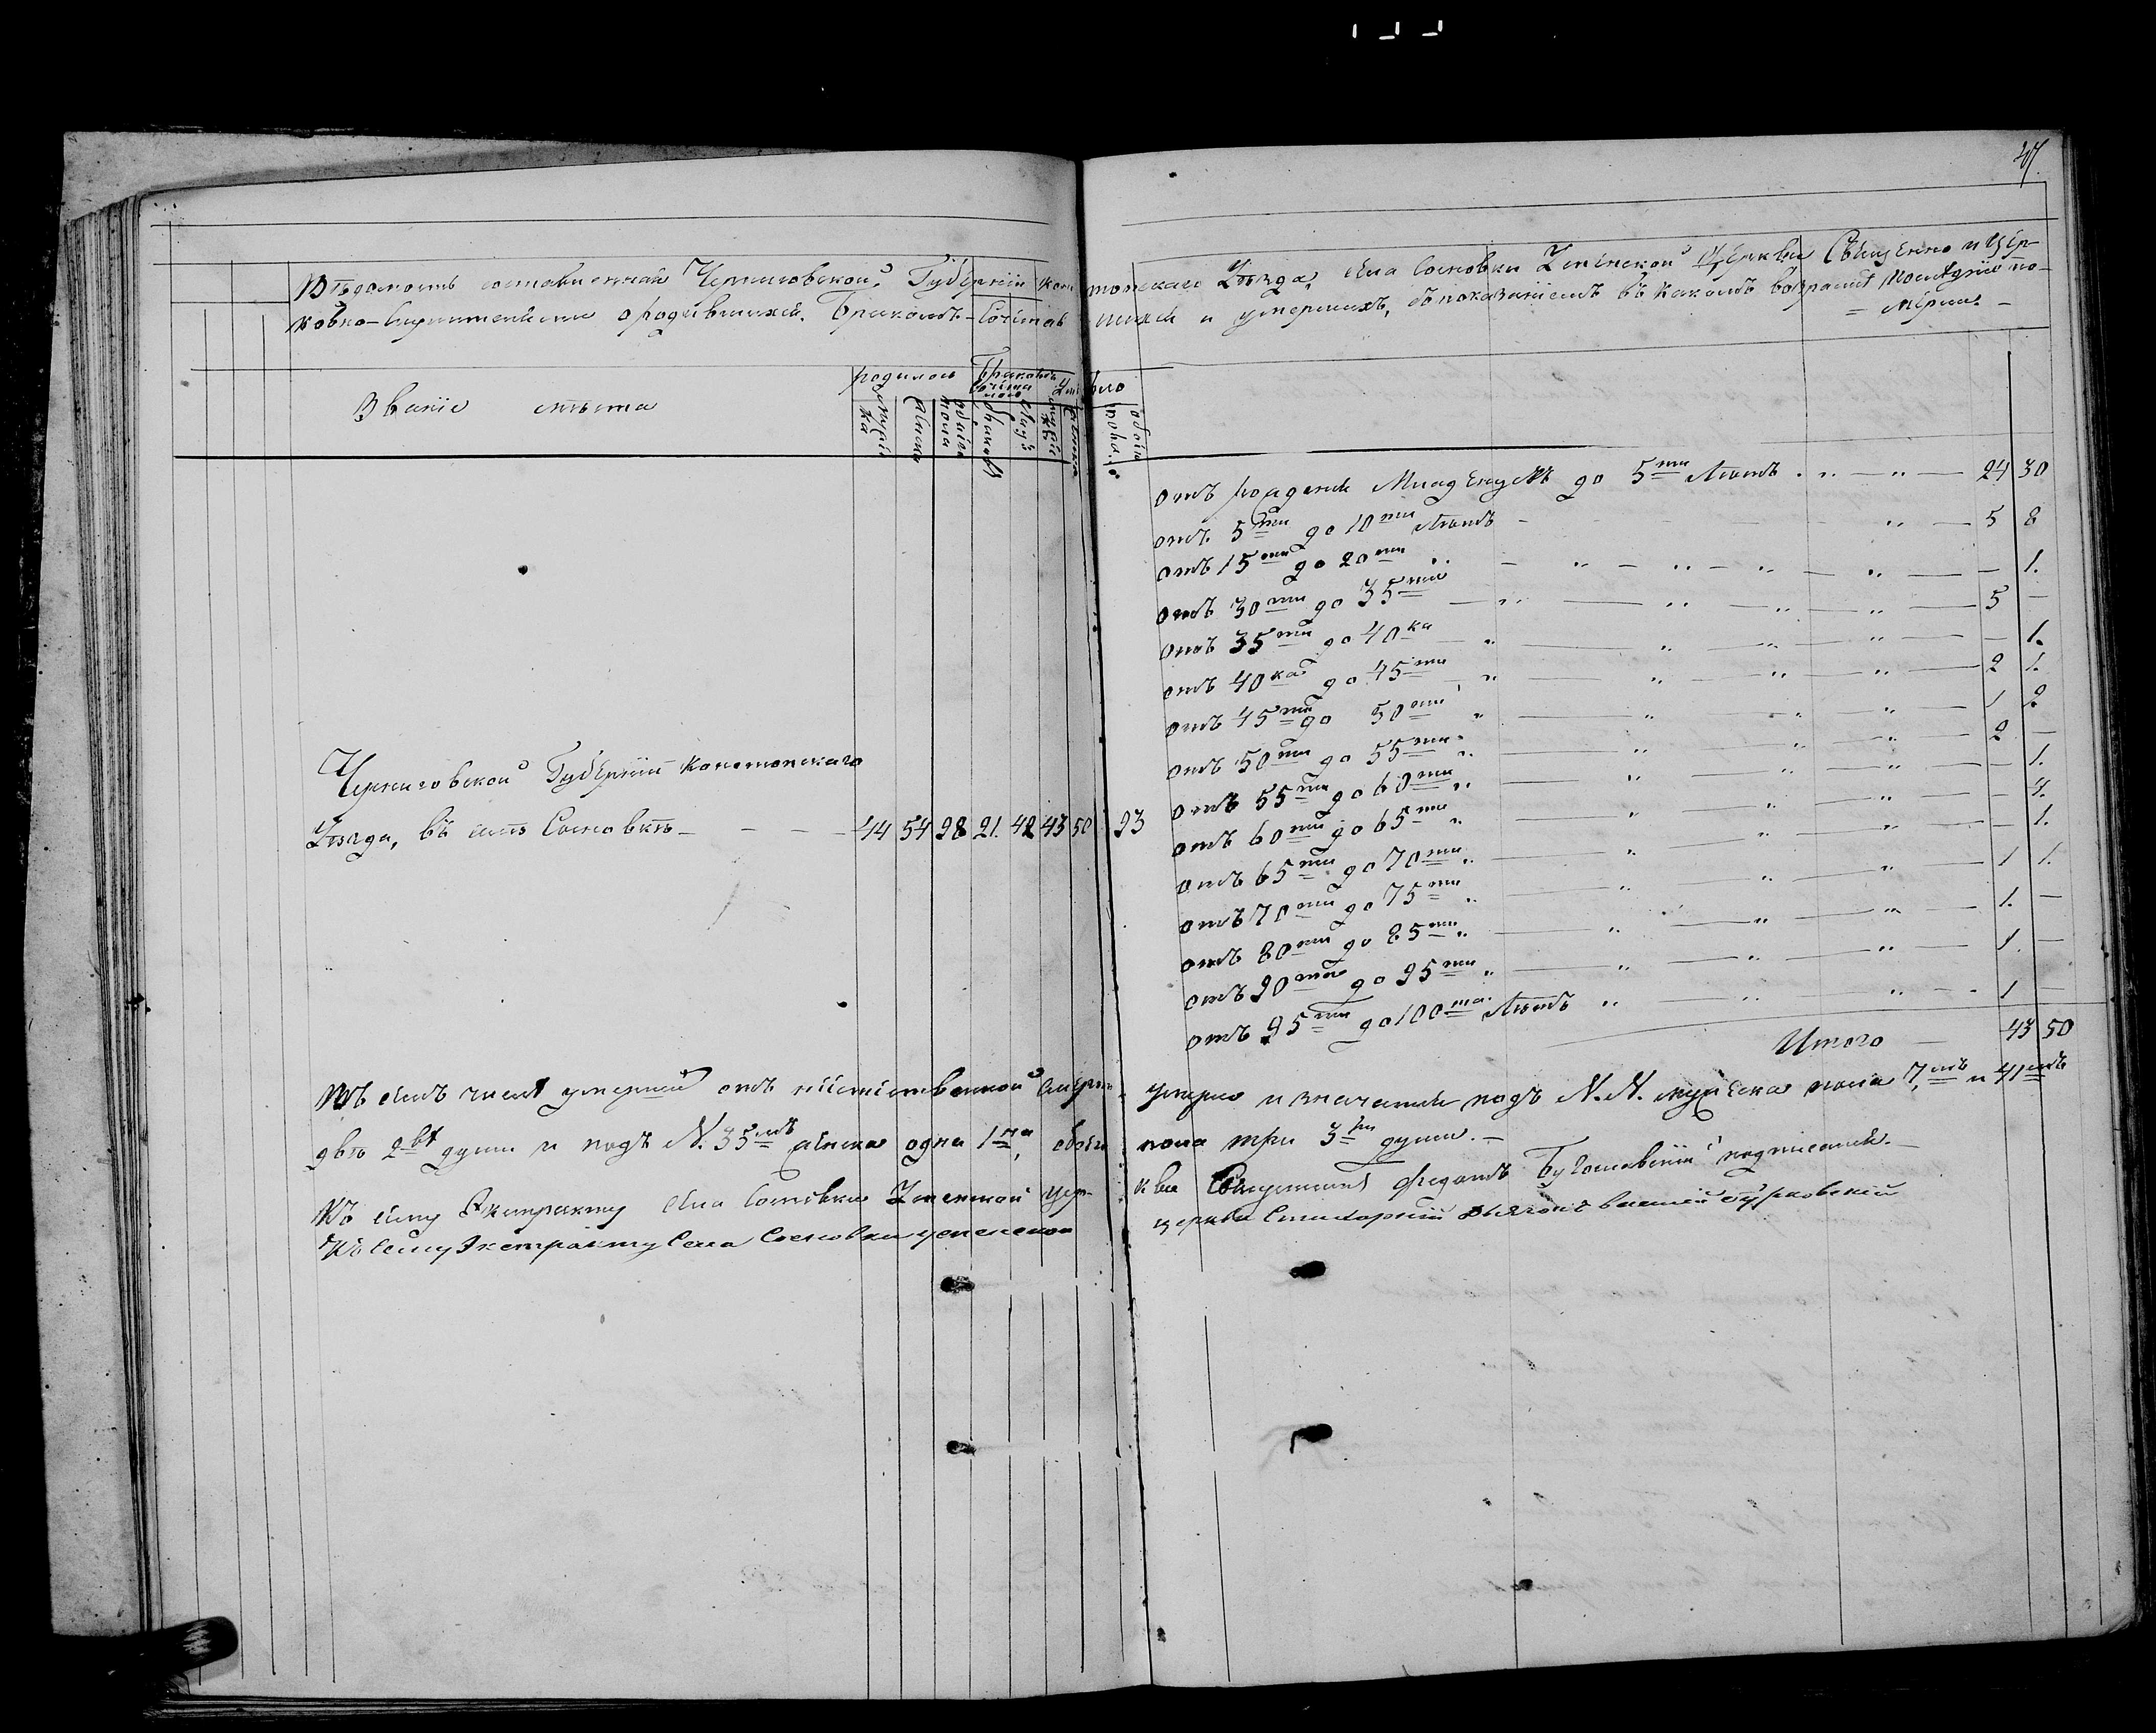 47.
Вѣдомость составленная Черниговской Губерніи Коно топскаго Уѣзда, села Сосновки Успенской Церкви Священно и Цер-
ковно-Служителями о родившихся, Бракомъ-Сочетав шихся и умершихъ, съ показаніемъ въ какомъ возрастѣ послѣдніе по-
= мерли. -
Званіе мѣста
родилось Бракомъ сочеталось Умерло
мужеска женска обоего пола браковъ лицъ мужеска женска обоего пола.
отъ рожденія Младенцемъ до 5ти лѣтъ . „ — „ — 24 30
отъ 5ти до 10ти лѣтъ - „ — 5 8
отъ 15ти до 20ти „ — „ — „ — „ — „ — — 1.
отъ 30ти до 35ти — „ — „ — „ — „ — 5 —
отъ 35ти до 40ка — „ — „ — „ — „ — — 1.
отъ 40ка до 45ти — „ — „ — „ — „ — 2 1.
отъ 45ти до 50ти „ — „ — „ — „ — 1 2
отъ 50ти до 55ти „ — „ — „ — „ — 2 —
отъ 55ти до 60ти „ — „ — „ — „ — — 1.
отъ 60ти до 65ти „ — „ — „ — „ — — 4.
отъ 65ти до 70ти „ — „ — „ — „ — — 1.
отъ 70ти до 75ти „ — „ — „ — „ — 1 1.
отъ 80ти до 85ти „ — „ — „ — „ — 1. —
отъ 90то до 95ти „ — „ — „ — „ — 1. —
отъ 95ти до 100та лѣтъ „ — „ — „ — 1 —
Черниговской Губерніи Конотопскаго
Уѣзда, въ селѣ Сосновкѣ — — — — 44 54 98 21. 42 43 50 93
Итого — 43 50
Въ семъ числѣ умершей отъ неестественной смерти умерло и значатся подъ N.N. мужеска пола 7.мъ и 41мъ
двѣ 2вѣ души и подъ N. 35мъ женска одна 1на, обоего пола три 3ри души. —
Къ сему Экстракту села Сосновки Успенской Цер- кви Священникъ подписался. —
Къ сему Экстракту Села Сосновки успенской церкви